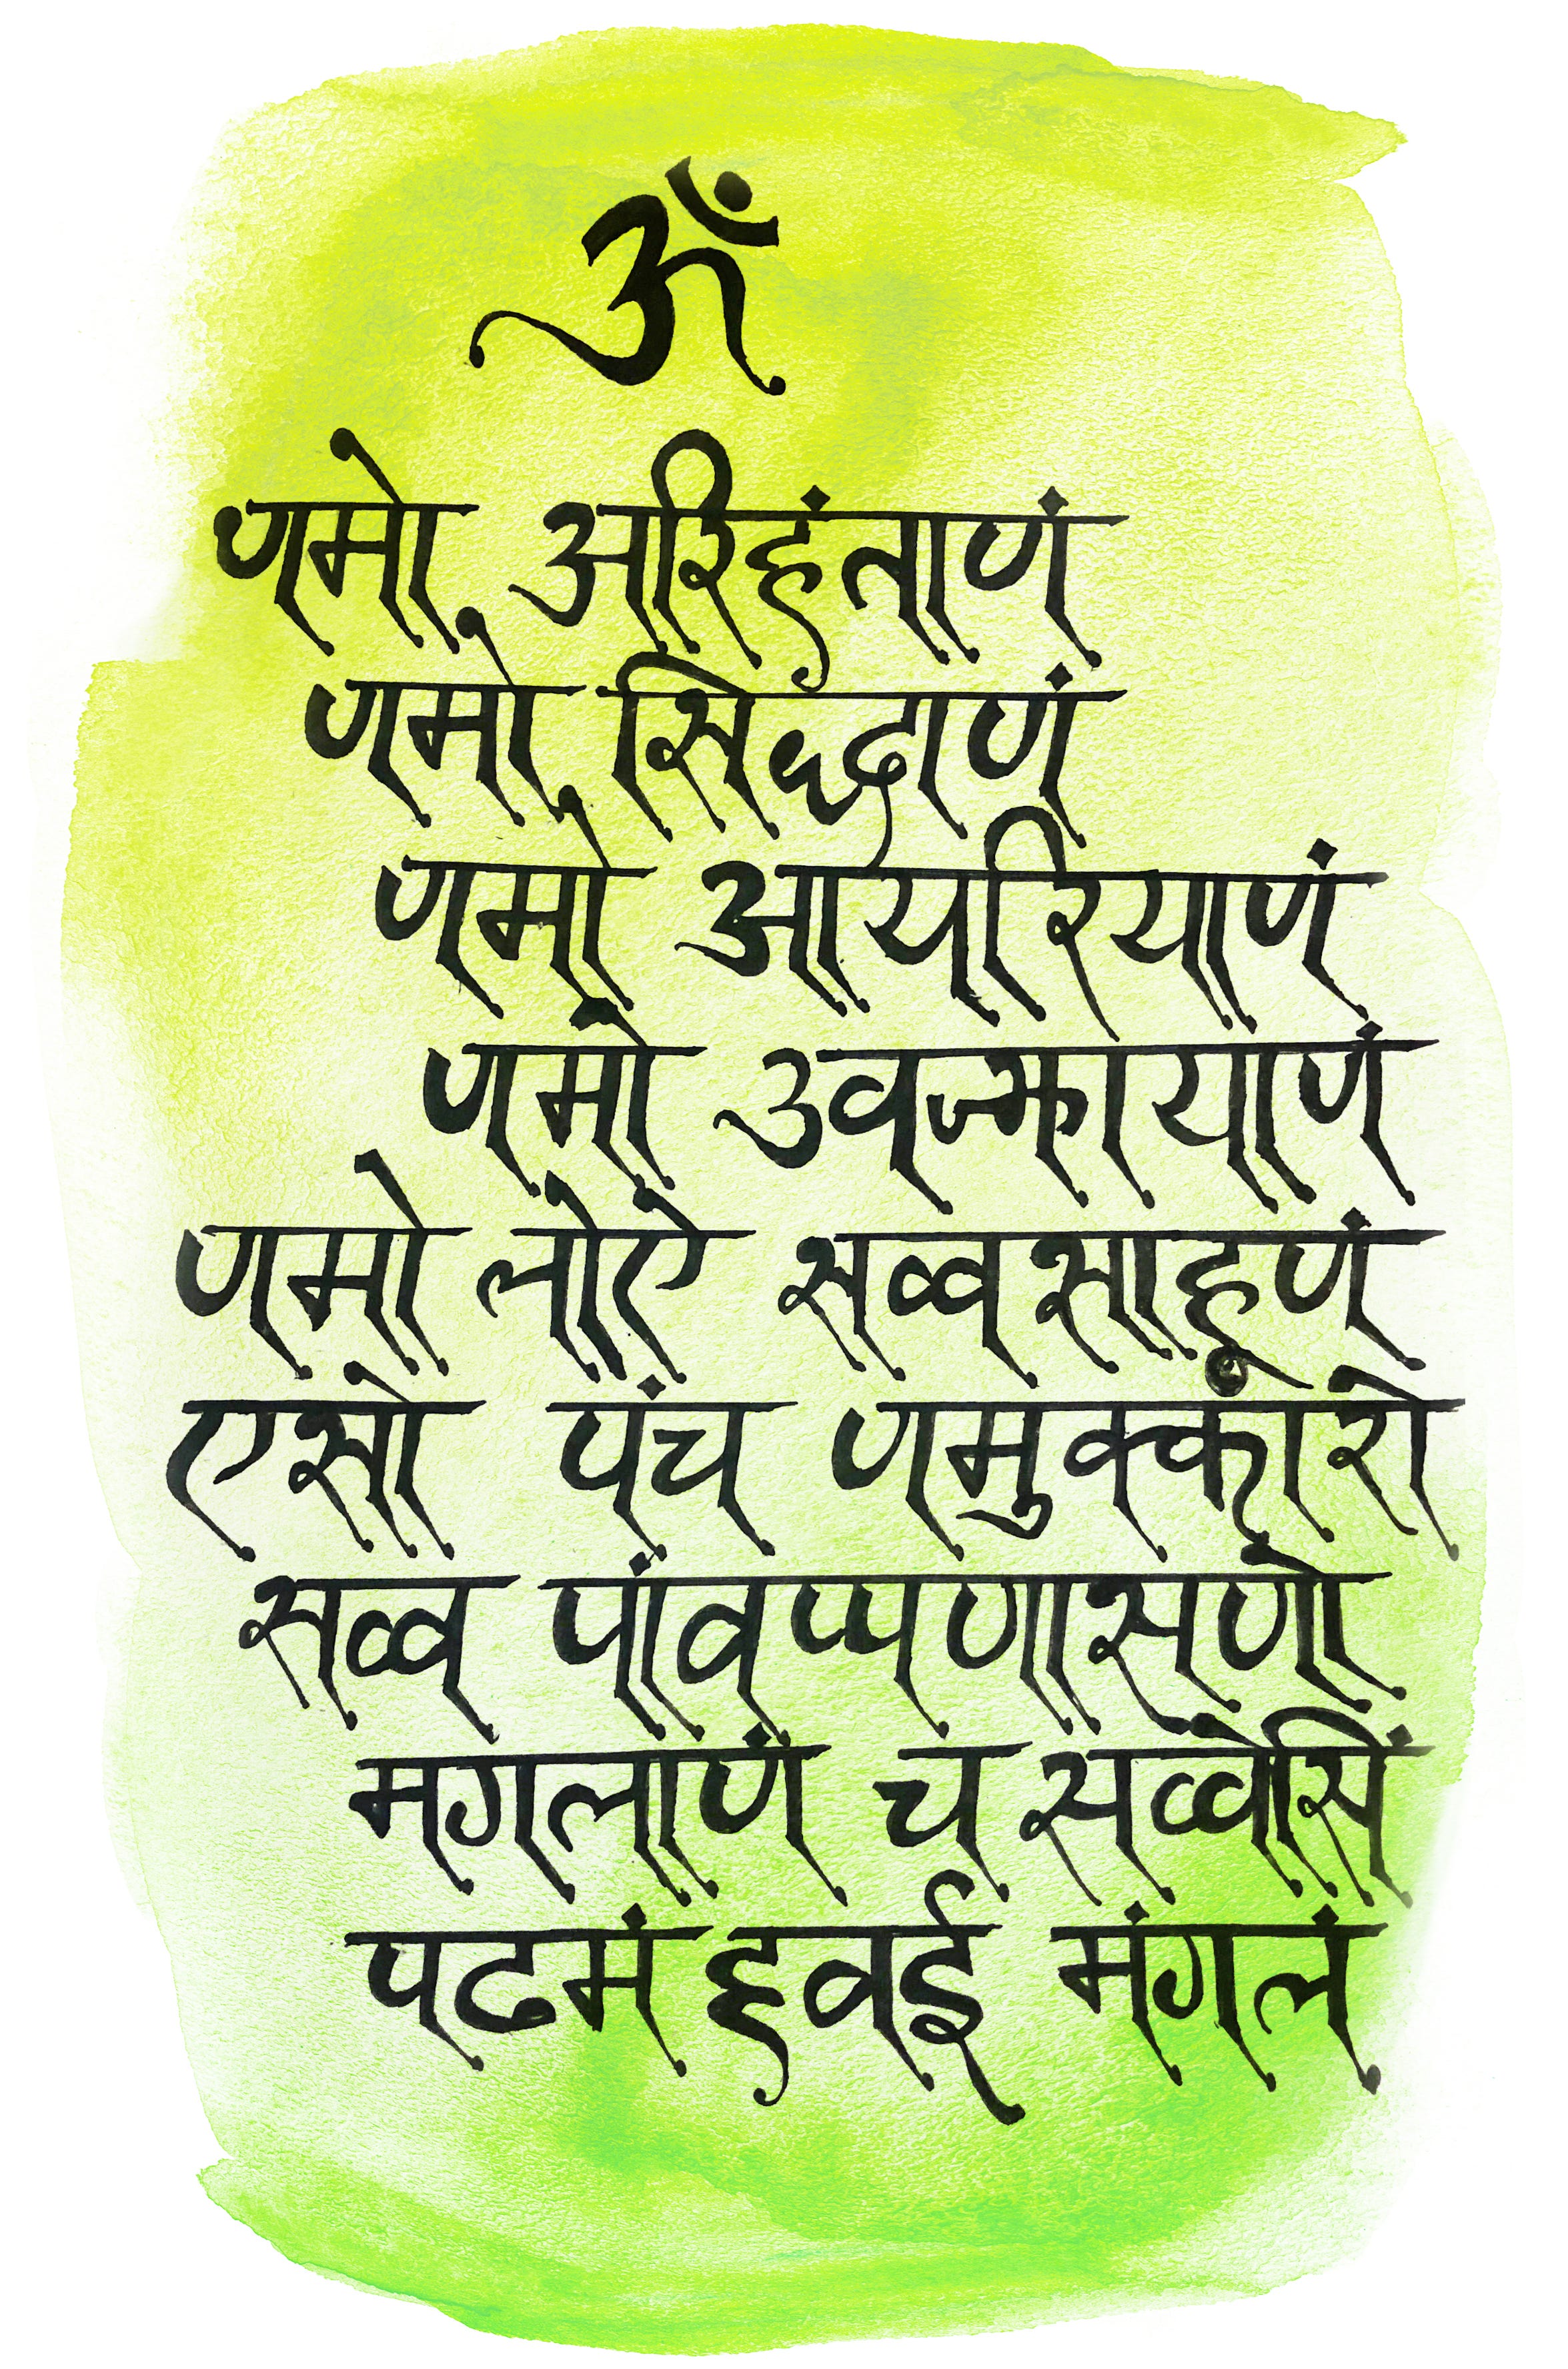 ॐ
णमो अरिहंताणं
णमो सिद्धाणं
णमो आयरियाणं
णमो उवज्झायाणं
णमो लोए सव्व साहूणं
एसो पंच णमुक्कारो
सव्व पावप्पणासणो
मगलाणं च सव्वेसिं
पढमं हवई मंगलं